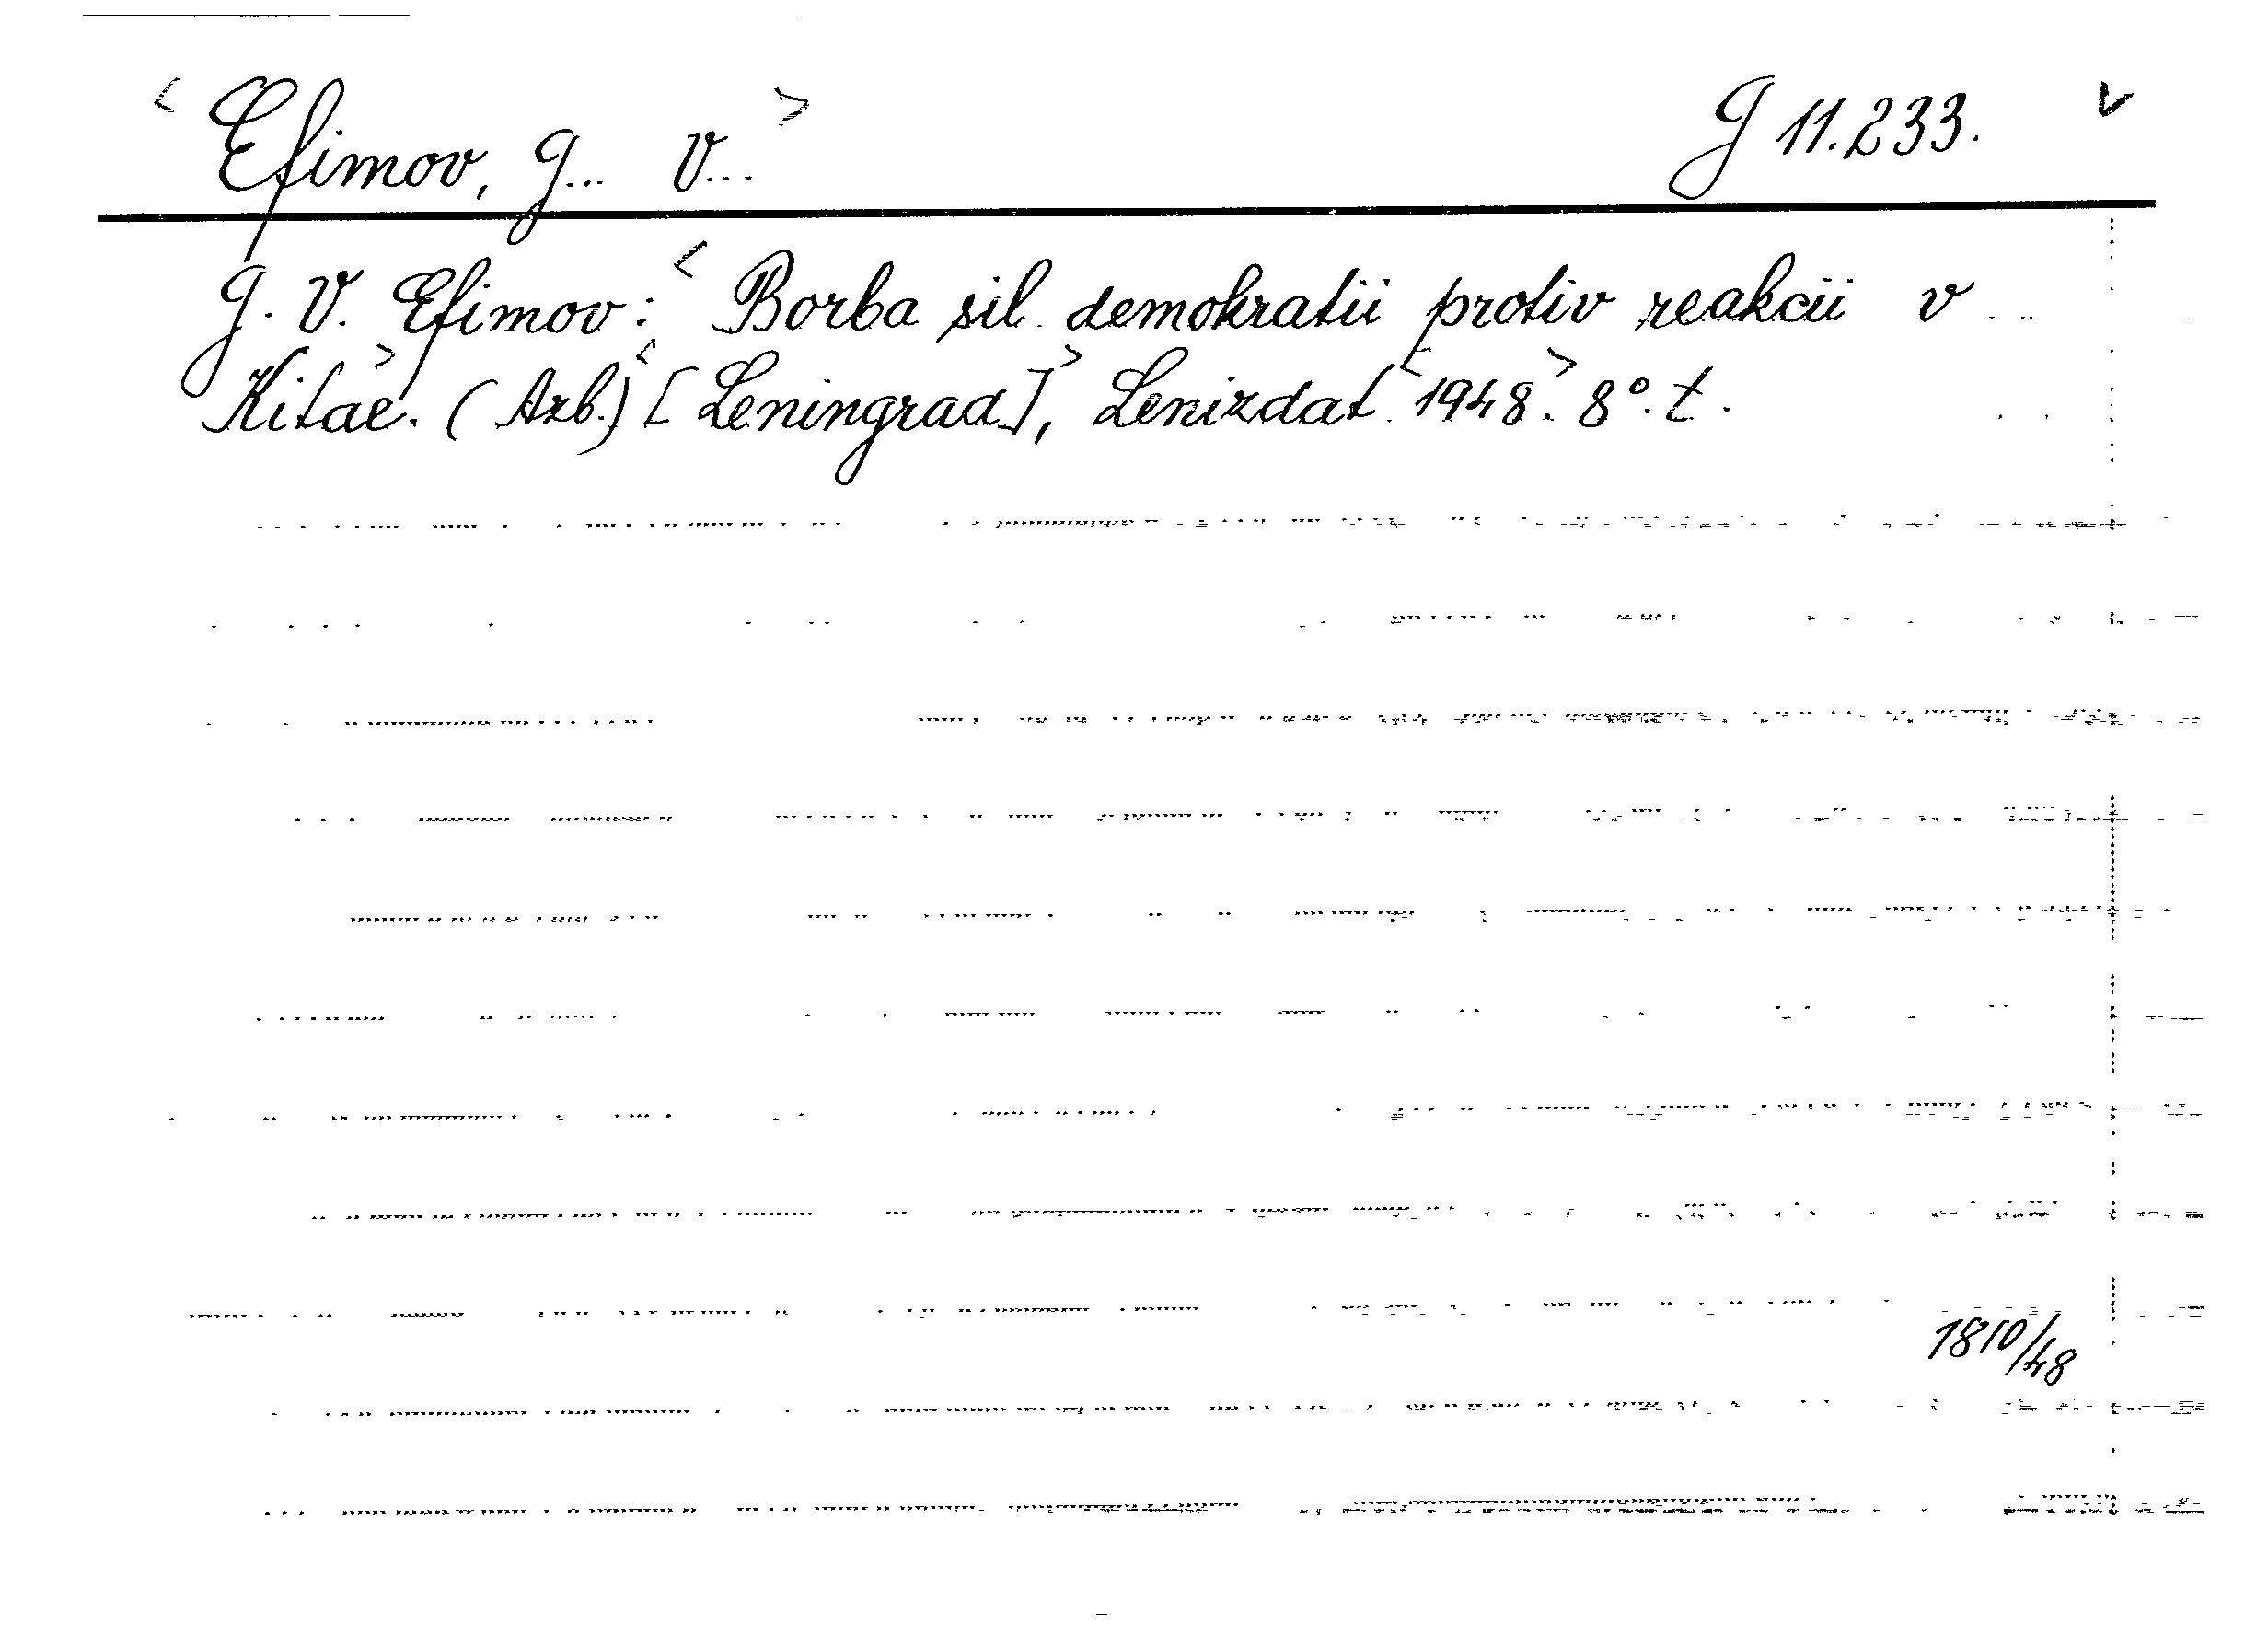 < Efimov, G... V... > G 11.233. v
G. V. Efimov: < Borba sil demokratii protiv reakcii v
Kitae >. (Azb.) < [Leningrad], > Lenizdat < 1948 >. 8°. t.
1810/48